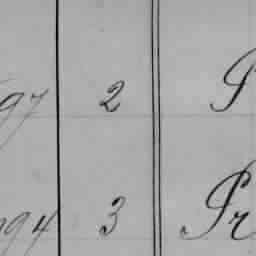 97 2 P
94 3 Pr